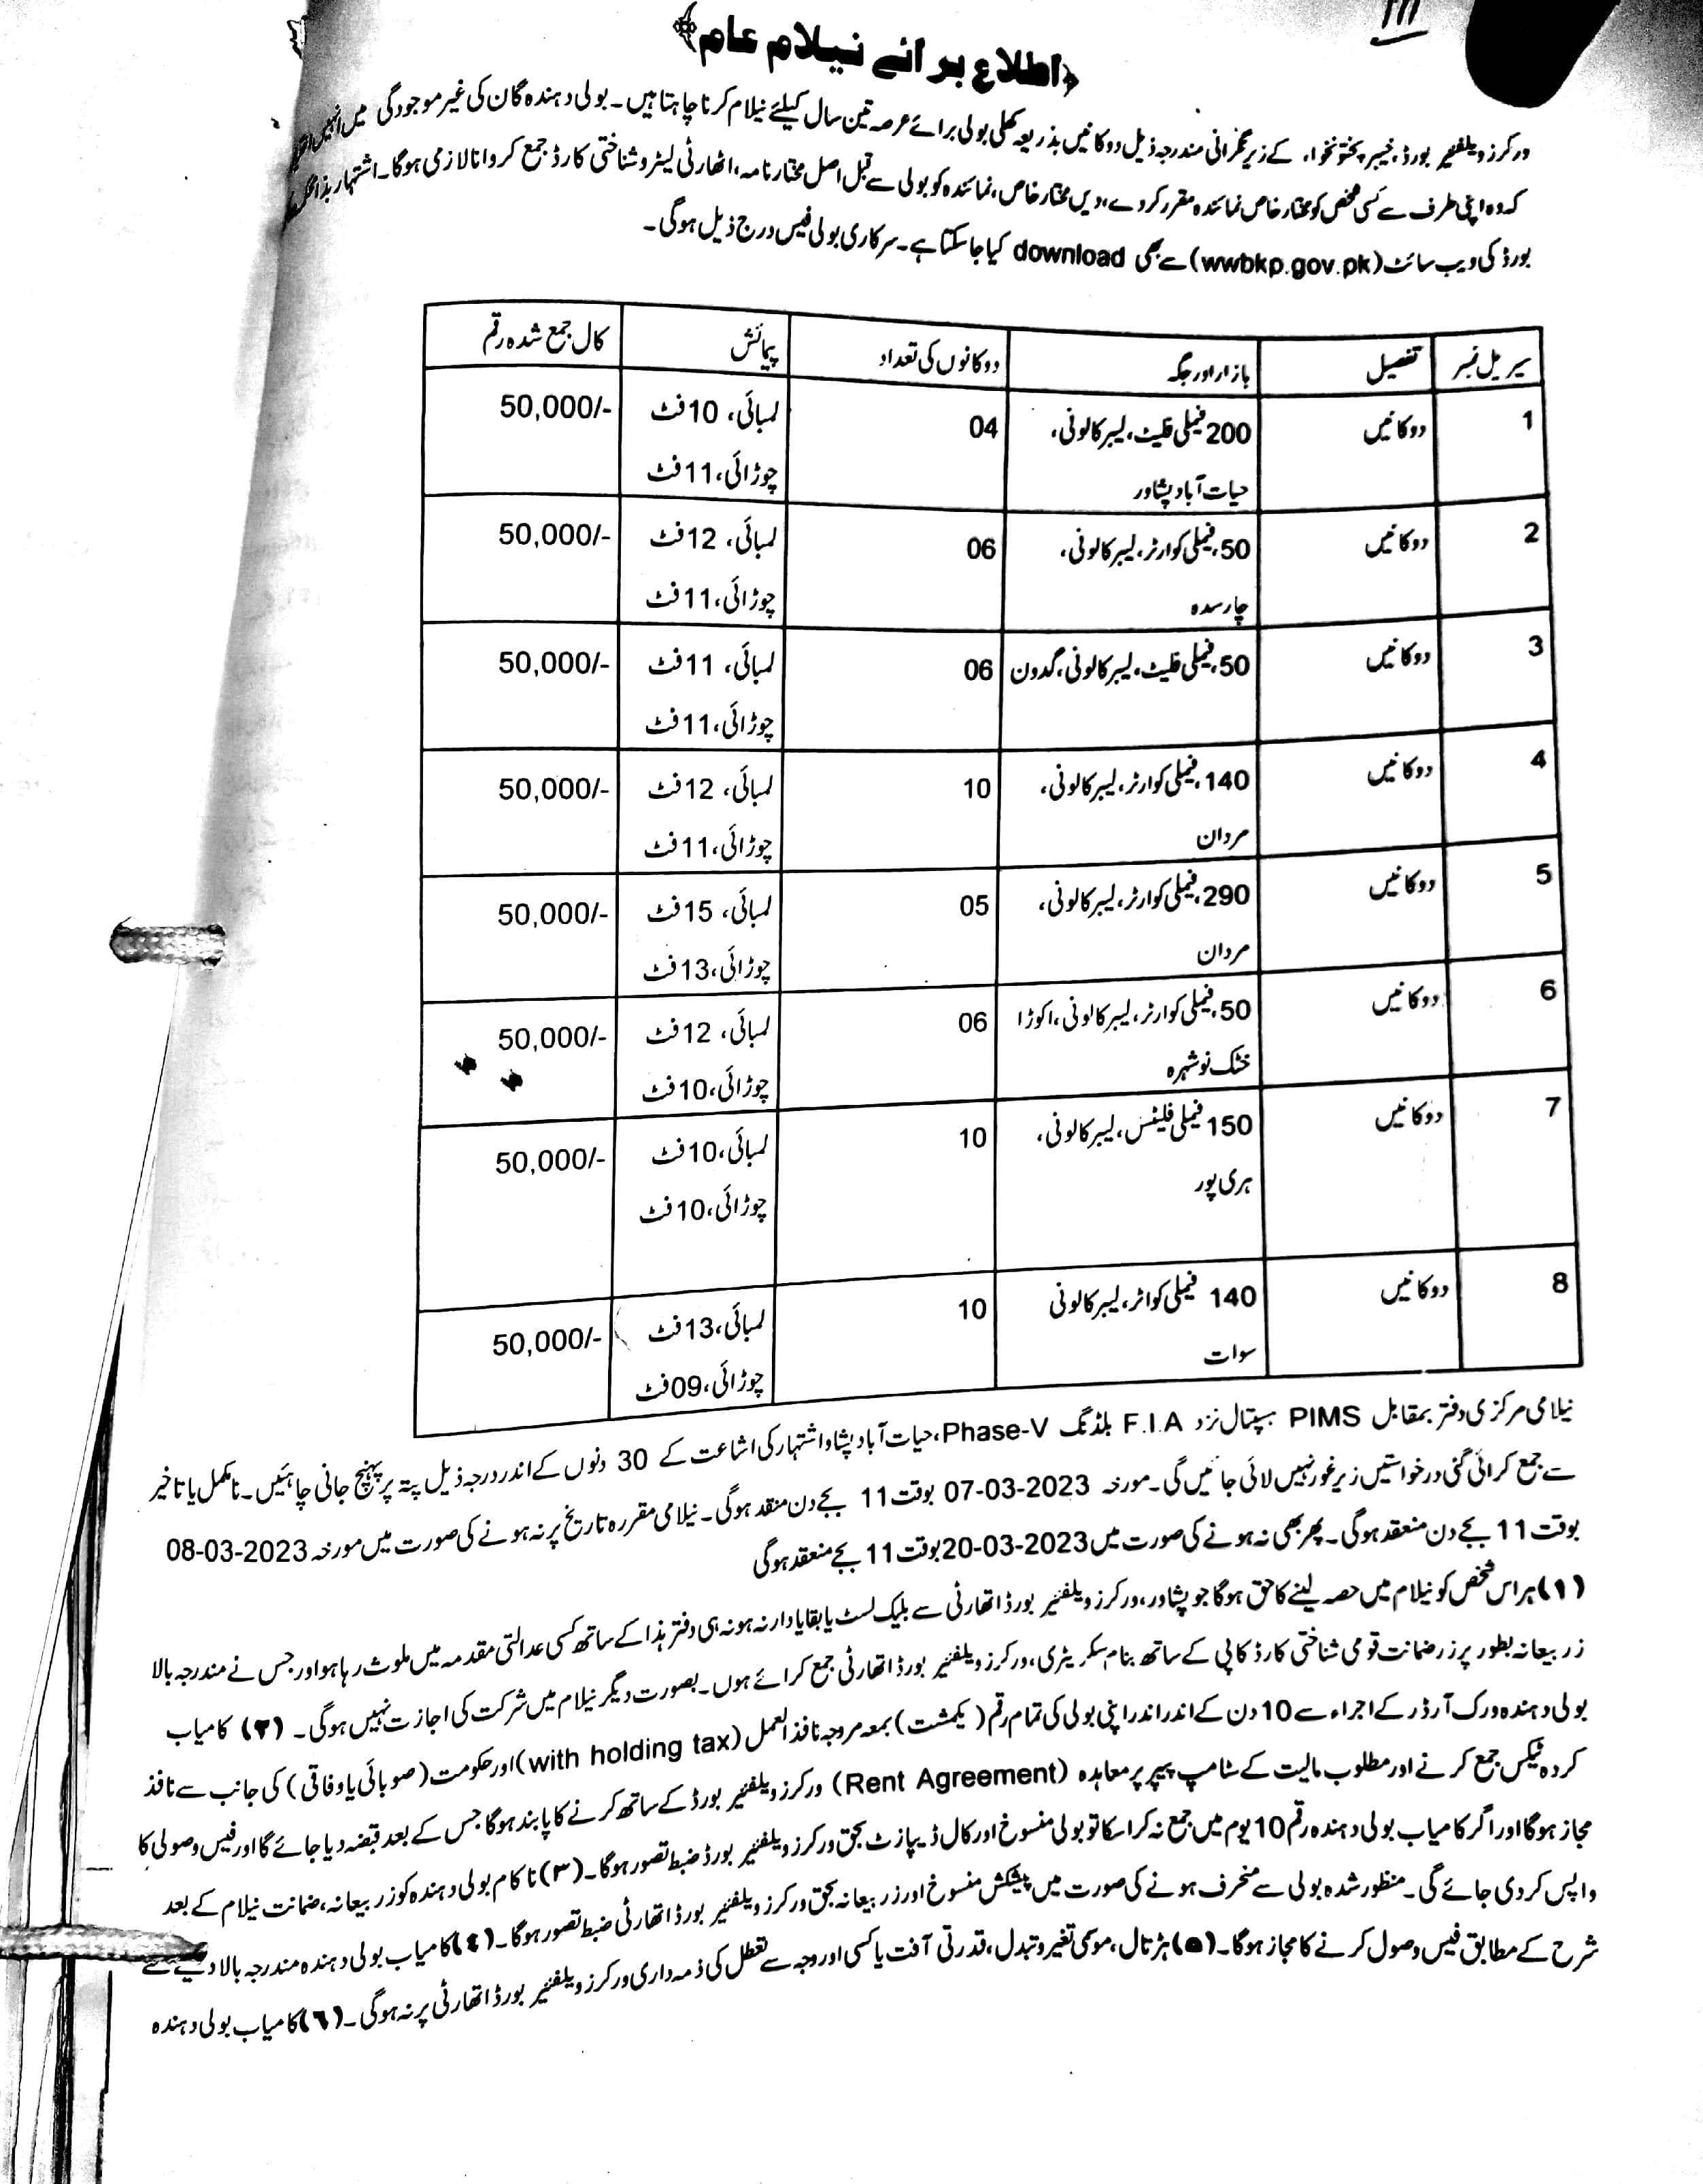 ﴿اطلاع برائے نیلام عام﴾
ورکرز ویلفئیر بورڈ، خیبر پختونخواہ کے زیر نگرانی مندرجہ ذیل دوکانیں بذریعہ کھلی بولی برائے عرصہ تین سال کیلئے نیلام کرنا چاہتا ہیں۔ بولی دہندہ گان کی غیر موجودگی میں انہیں
کہ وہ اپنی طرف سے کسی شخص کو مختار خاص نمائندہ مقرر کر دے، دیں مختار خاص، نمائندہ کو بولی سے قبل اصل مختار نامہ، اتھارٹی لیٹر و شناختی کارڈ جمع کروانا لازمی ہوگا۔ اشتہار ہذا
بورڈ کی ویب سائٹ (wwbkp.gov.pk) سے بھی download کیا جا سکتا ہے۔ سرکاری بولی فیس درج ذیل ہوگی۔
سیریل نمبر تفصیل بازار اور جگہ دوکانوں کی تعداد پیمائش کال جمع شدہ رقم
1 دوکانیں 200 فیملی فلیٹ، لیبر کالونی، 04 لمبائی، 10 فٹ 50,000/-
حیات آباد پشاور چوڑائی، 11 فٹ
2 دوکانیں 50، فیملی کوارٹر، لیبر کالونی، 06 لمبائی، 12 فٹ 50,000/-
چارسدہ چوڑائی، 11 فٹ
3 دوکانیں 50، فیملی فلیٹ، لیبر کالونی، گدون 06 لمبائی، 11 فٹ 50,000/-
چوڑائی، 11 فٹ
4 دوکانیں 140، فیملی کوارٹر، لیبر کالونی، 10 لمبائی، 12 فٹ 50,000/-
مردان چوڑائی، 11 فٹ
5 دوکانیں 290، فیملی کوارٹر، لیبر کالونی، 05 لمبائی، 15 فٹ 50,000/-
مردان چوڑائی، 13 فٹ
6 دوکانیں 50، فیملی کوارٹر، لیبر کالونی، اکوڑا 06 لمبائی، 12 فٹ 50,000/-
خٹک نوشہرہ چوڑائی، 10 فٹ
7 دوکانیں 150 فیملی فلیٹس، لیبر کالونی، 10 لمبائی، 10 فٹ 50,000/-
ہری پور چوڑائی، 10 فٹ
8 دوکانیں 140 فیملی کواٹر، لیبر کالونی 10 لمبائی، 13 فٹ 50,000/-
سوات چوڑائی، 09 فٹ
نیلامی مرکزی دفتر بمقابل PIMS ہسپتال نزد F.I.A بلڈنگ Phase-V، حیات آباد پشاو اشتہار کی اشاعت کے 30 دنوں کے اندر درجہ ذیل پتہ پر پہنچ جانی چاہئیں۔ نامکمل یا تاخیر
سے جمع کرائی گئی درخواستیں زیر غور نہیں لائی جائیں گی۔ مورخہ 07-03-2023 بوقت 11 بجے دن منقد ہوگی۔ نیلامی مقررہ تاریخ پر نہ ہونے کی صورت میں مورخہ 08-03-2023
بوقت 11 بجے دن منعقد ہوگی۔ پھر بھی نہ ہونے کی صورت میں 20-03-2023 بوقت 11 بجے منعقد ہوگی
(۱) ہر اس شخص کو نیلام میں حصہ لینے کا حق ہوگا جو پشاور، ورکرز ویلفئیر بورڈ اتھارٹی سے بلیک لسٹ یا بقایا دار نہ ہو نہ ہی دفتر ہذا کے ساتھ کسی عدالتی مقدمہ میں ملوث رہا ہو اور جس نے مندرجہ بالا
زر بیعانہ بطور پر زر ضمانت قومی شناختی کارڈ کاپی کے ساتھ بنام سکریٹری، ورکرز ویلفئیر بورڈ اتھارٹی جمع کرائے ہوں۔ بصورت دیگر نیلام میں شرکت کی اجازت نہیں ہوگی۔ (۲) کامیاب
بولی دہندہ ورک آرڈر کے اجراء سے 10 دن کے اندر اندر اپنی بولی کی تمام رقم (یکمشت) بمعہ مروجہ نافذ العمل (with holding tax) اور حکومت (صوبائی یا وفاقی) کی جانب سے نافذ
کردہ ٹیکس جمع کرنے اور مطلوب مالیت کے سٹامپ پیپر پر معاہدہ (Rent Agreement) ورکرز ویلفئیر بورڈ کے ساتھ کرنے کا پابند ہوگا جس کے بعد قبضہ دیا جائے گا اور فیس وصولی کا
مجاز ہوگا اور اگر کامیاب بولی دہندہ رقم 10 یوم میں جمع نہ کرا سکا تو بولی منسوخ اور کال ڈیپازٹ بحق ورکرز ویلفئیر بورڈ ضبط تصور ہوگا۔ (۳) ناکام بولی دہندہ کو زر بیعانہ، ضمانت نیلام کے بعد
واپس کر دی جائے گی۔ منظور شدہ بولی سے منحرف ہونے کی صورت میں پیشکش منسوخ اور زر بیعانہ بحق ورکرز ویلفئیر بورڈ اتھارٹی ضبط تصور ہوگا۔ (٤) کامیاب بولی دہندہ مندرجہ بالا
شرح کے مطابق فیس وصول کرنے کا مجاز ہوگا۔ (۵) ہڑتال، موسمی تغیر و تبدل، قدرتی آفت یا کسی اور وجہ سے تعطل کی ذمہ داری ورکرز ویلفئیر بورڈ اتھارٹی پر نہ ہوگی۔ (٦) کامیاب بولی دہندہ